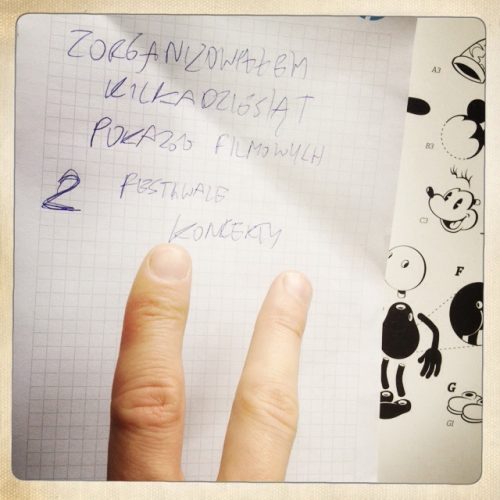 ZORGANIZOWAŁEM
KILKADZIESIĄT
POKAZÓW FILMOWYCH
2 FESTIWALE
KONCERTY
A3
B3
C2
F
G
G1